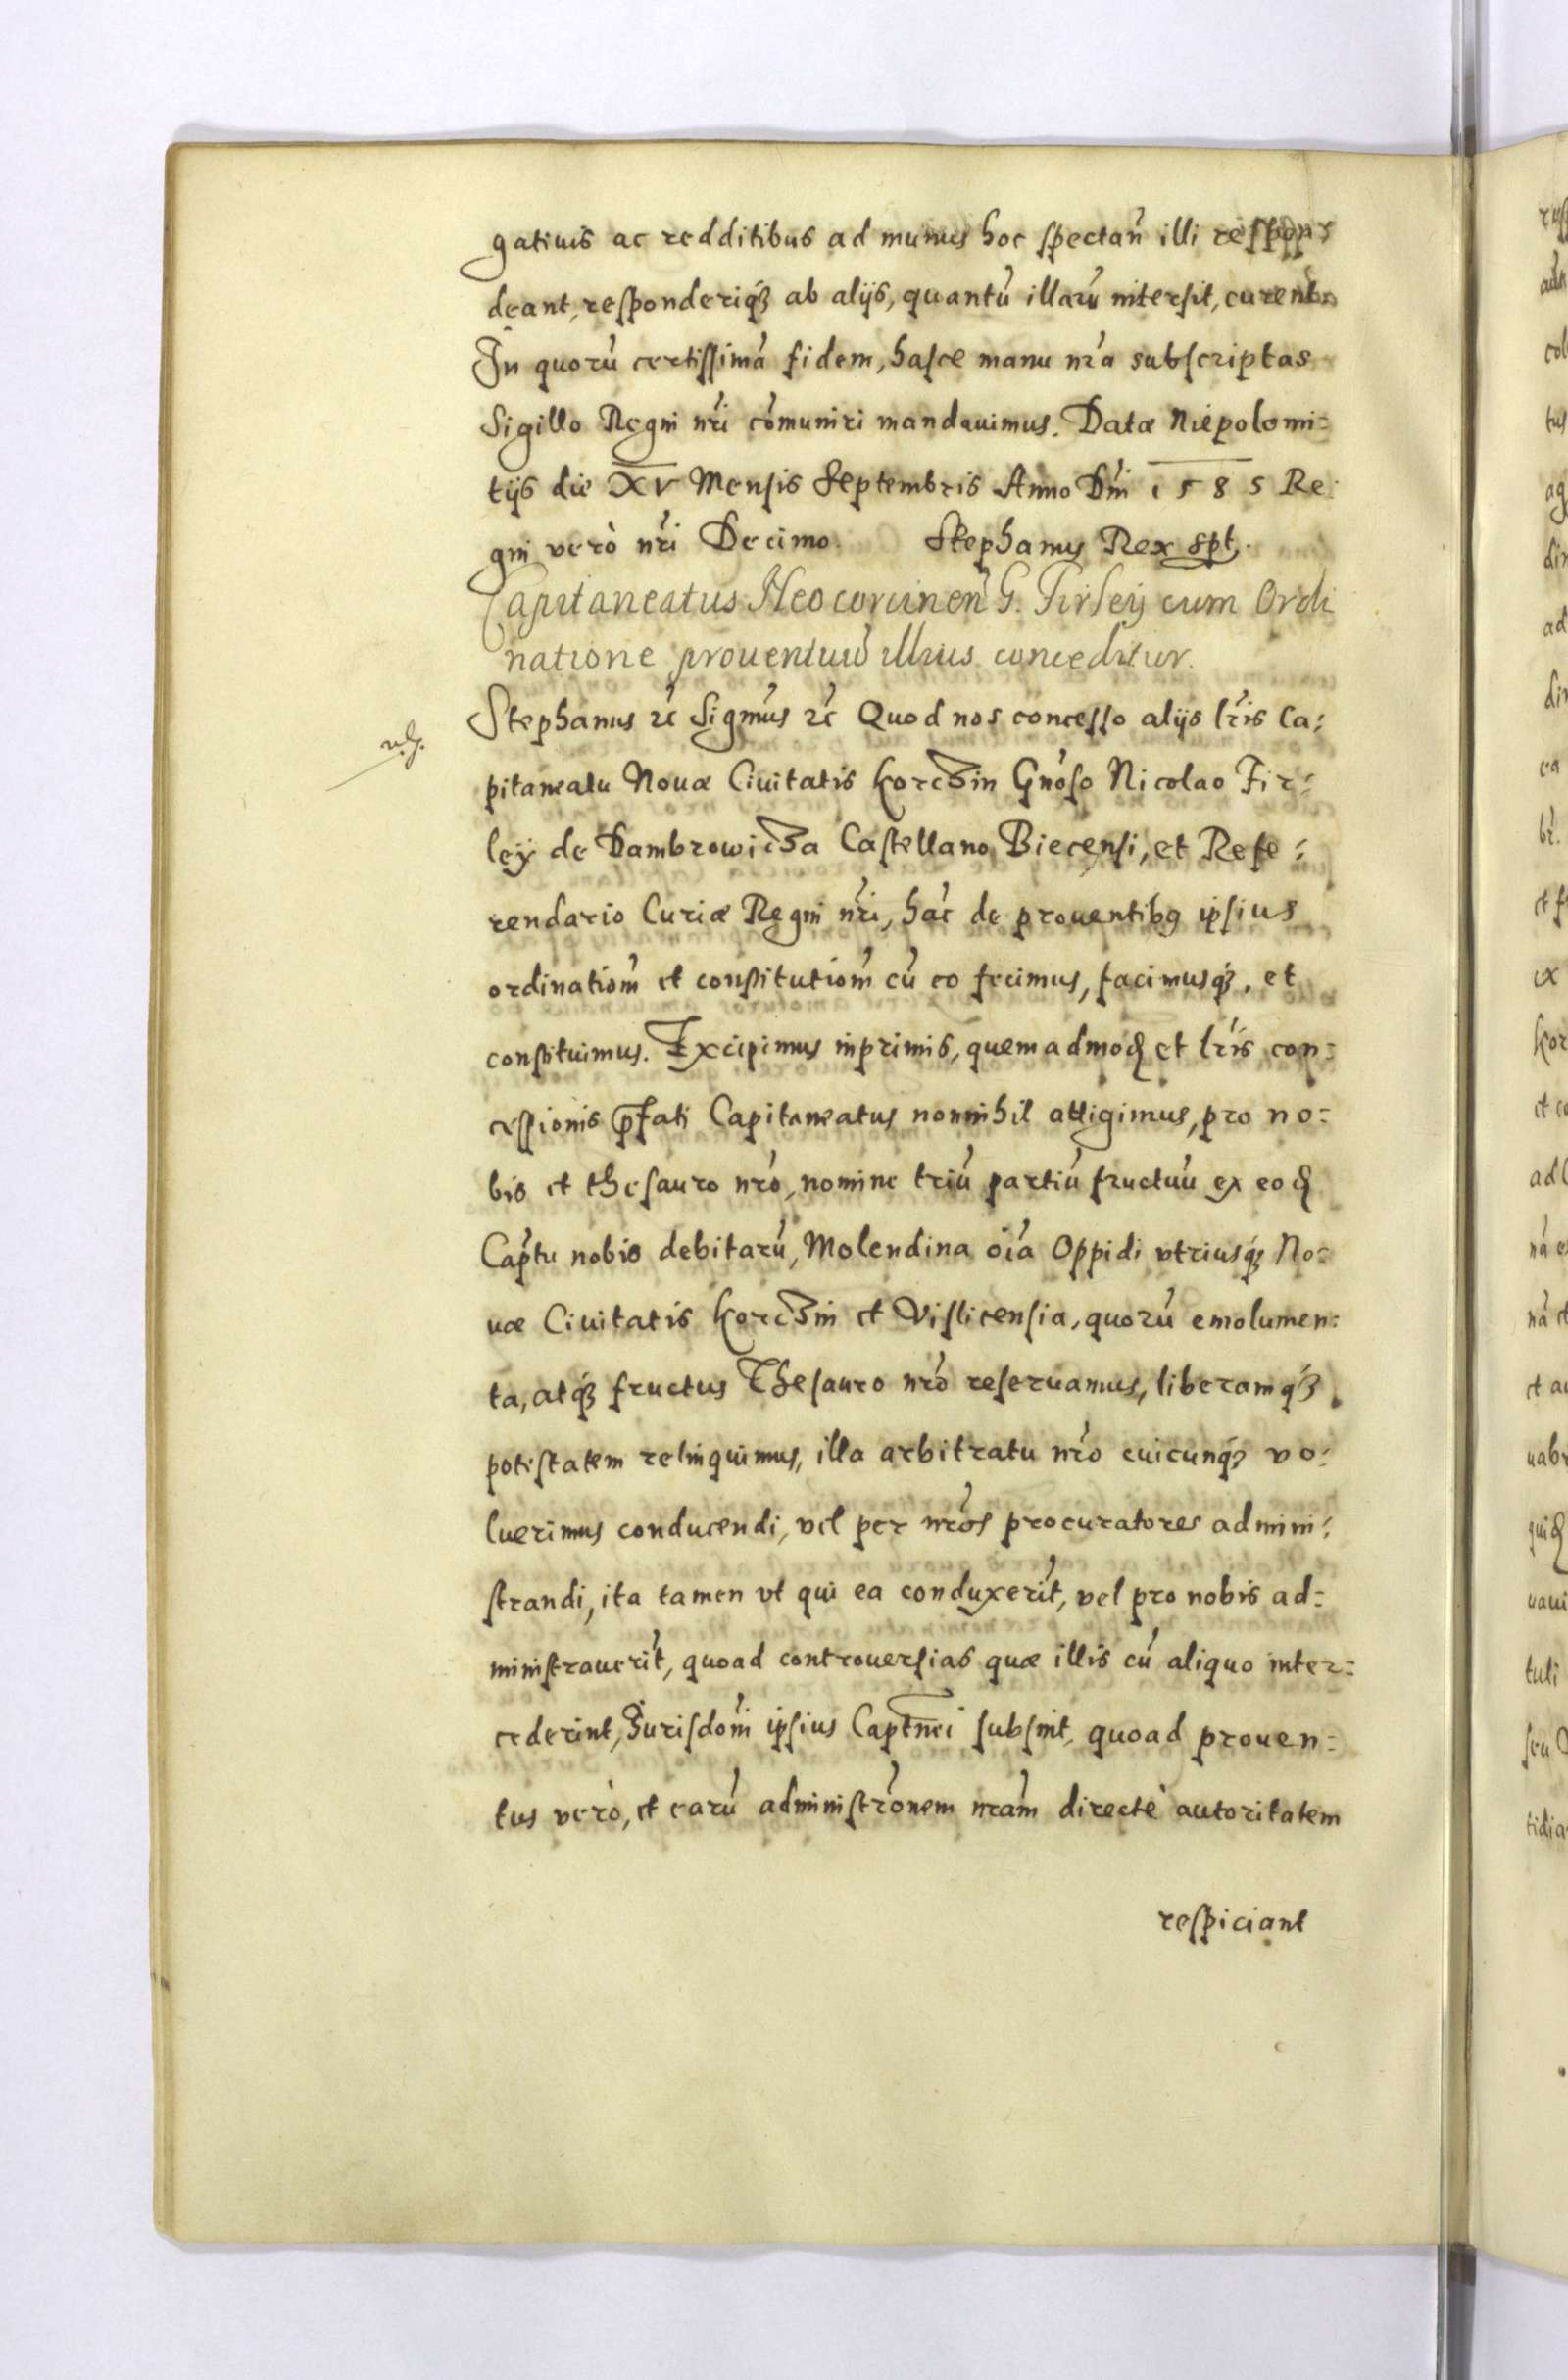 gatiuis ac redditibus ad munus hoc spectan̄ illi respon
deant, responderiqꝫ ab alijs, quantū illarū intersit, curent
In quorū certissimā fidem, hasce manu nr̄a subscriptas
Sigillo Regni nr̄i cōmuniri mandauimus. Datæ Niepolomi=
tijs die XV Mensis Septembris Anno Dn̄i 1585 Re
gni verò nr̄i Decimo. Stephanus Rex spt.
Capitaneatus Neocorcinen̄ G. Firleij cum Ordi
natione prouentuū illius conceditur.
Stephanus ꝛc̄ Sigmūs ꝛc̄ Quod nos concesso alijs lr̄is Ca:
pitaneatu Nouæ Ciuitatis Korczin Gn̄oso Nicolao Fir:
leÿ de Dambrowicza Castellano Biecensi, et Refe:
rendario Curiæ Regni nr̄i, hāc de prouentibꝰ ipsius
ordinatiōm et constitutiōm cū eo fecimus, facimusqꝫ, et
constituimus. Excipimus inprimis, quemadmodꝫ et lr̄is con=
cessionis p̄fati Capitaneatus nonnihil attigimus, pro no=
bis et thesauro nr̄o, nomine triū partiū fructuū ex eodꝫ
Cap̄tu nobis debitarū, Molendina oīa Oppidi vtriusqꝫ No=
uæ Ciuitatis Korczin et Vislicensia, quorū emolumen=
ta, atqꝫ fructus Thesauro nr̄o reseruamus, liberamqꝫ
potestatem relinquimus, illa arbitratu nr̄o cuicunqꝫ vo:
luerimus conducendi, vel per nr̄os procuratores admini:
strandi, ita tamen vt qui ea conduxerīt, vel pro nobis ad=
ministrauerīt, quoad controuersias quæ illis cū aliquo inter=
cederint, Jurisdōni ipsius Captn̄ei subsint, quoad prouen=
tus verò, et earū administrōnem nrām directè autoritatem
respiciant